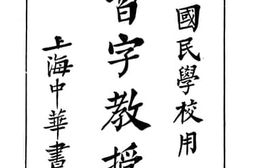 國民學校用
習字教授
上海中華書